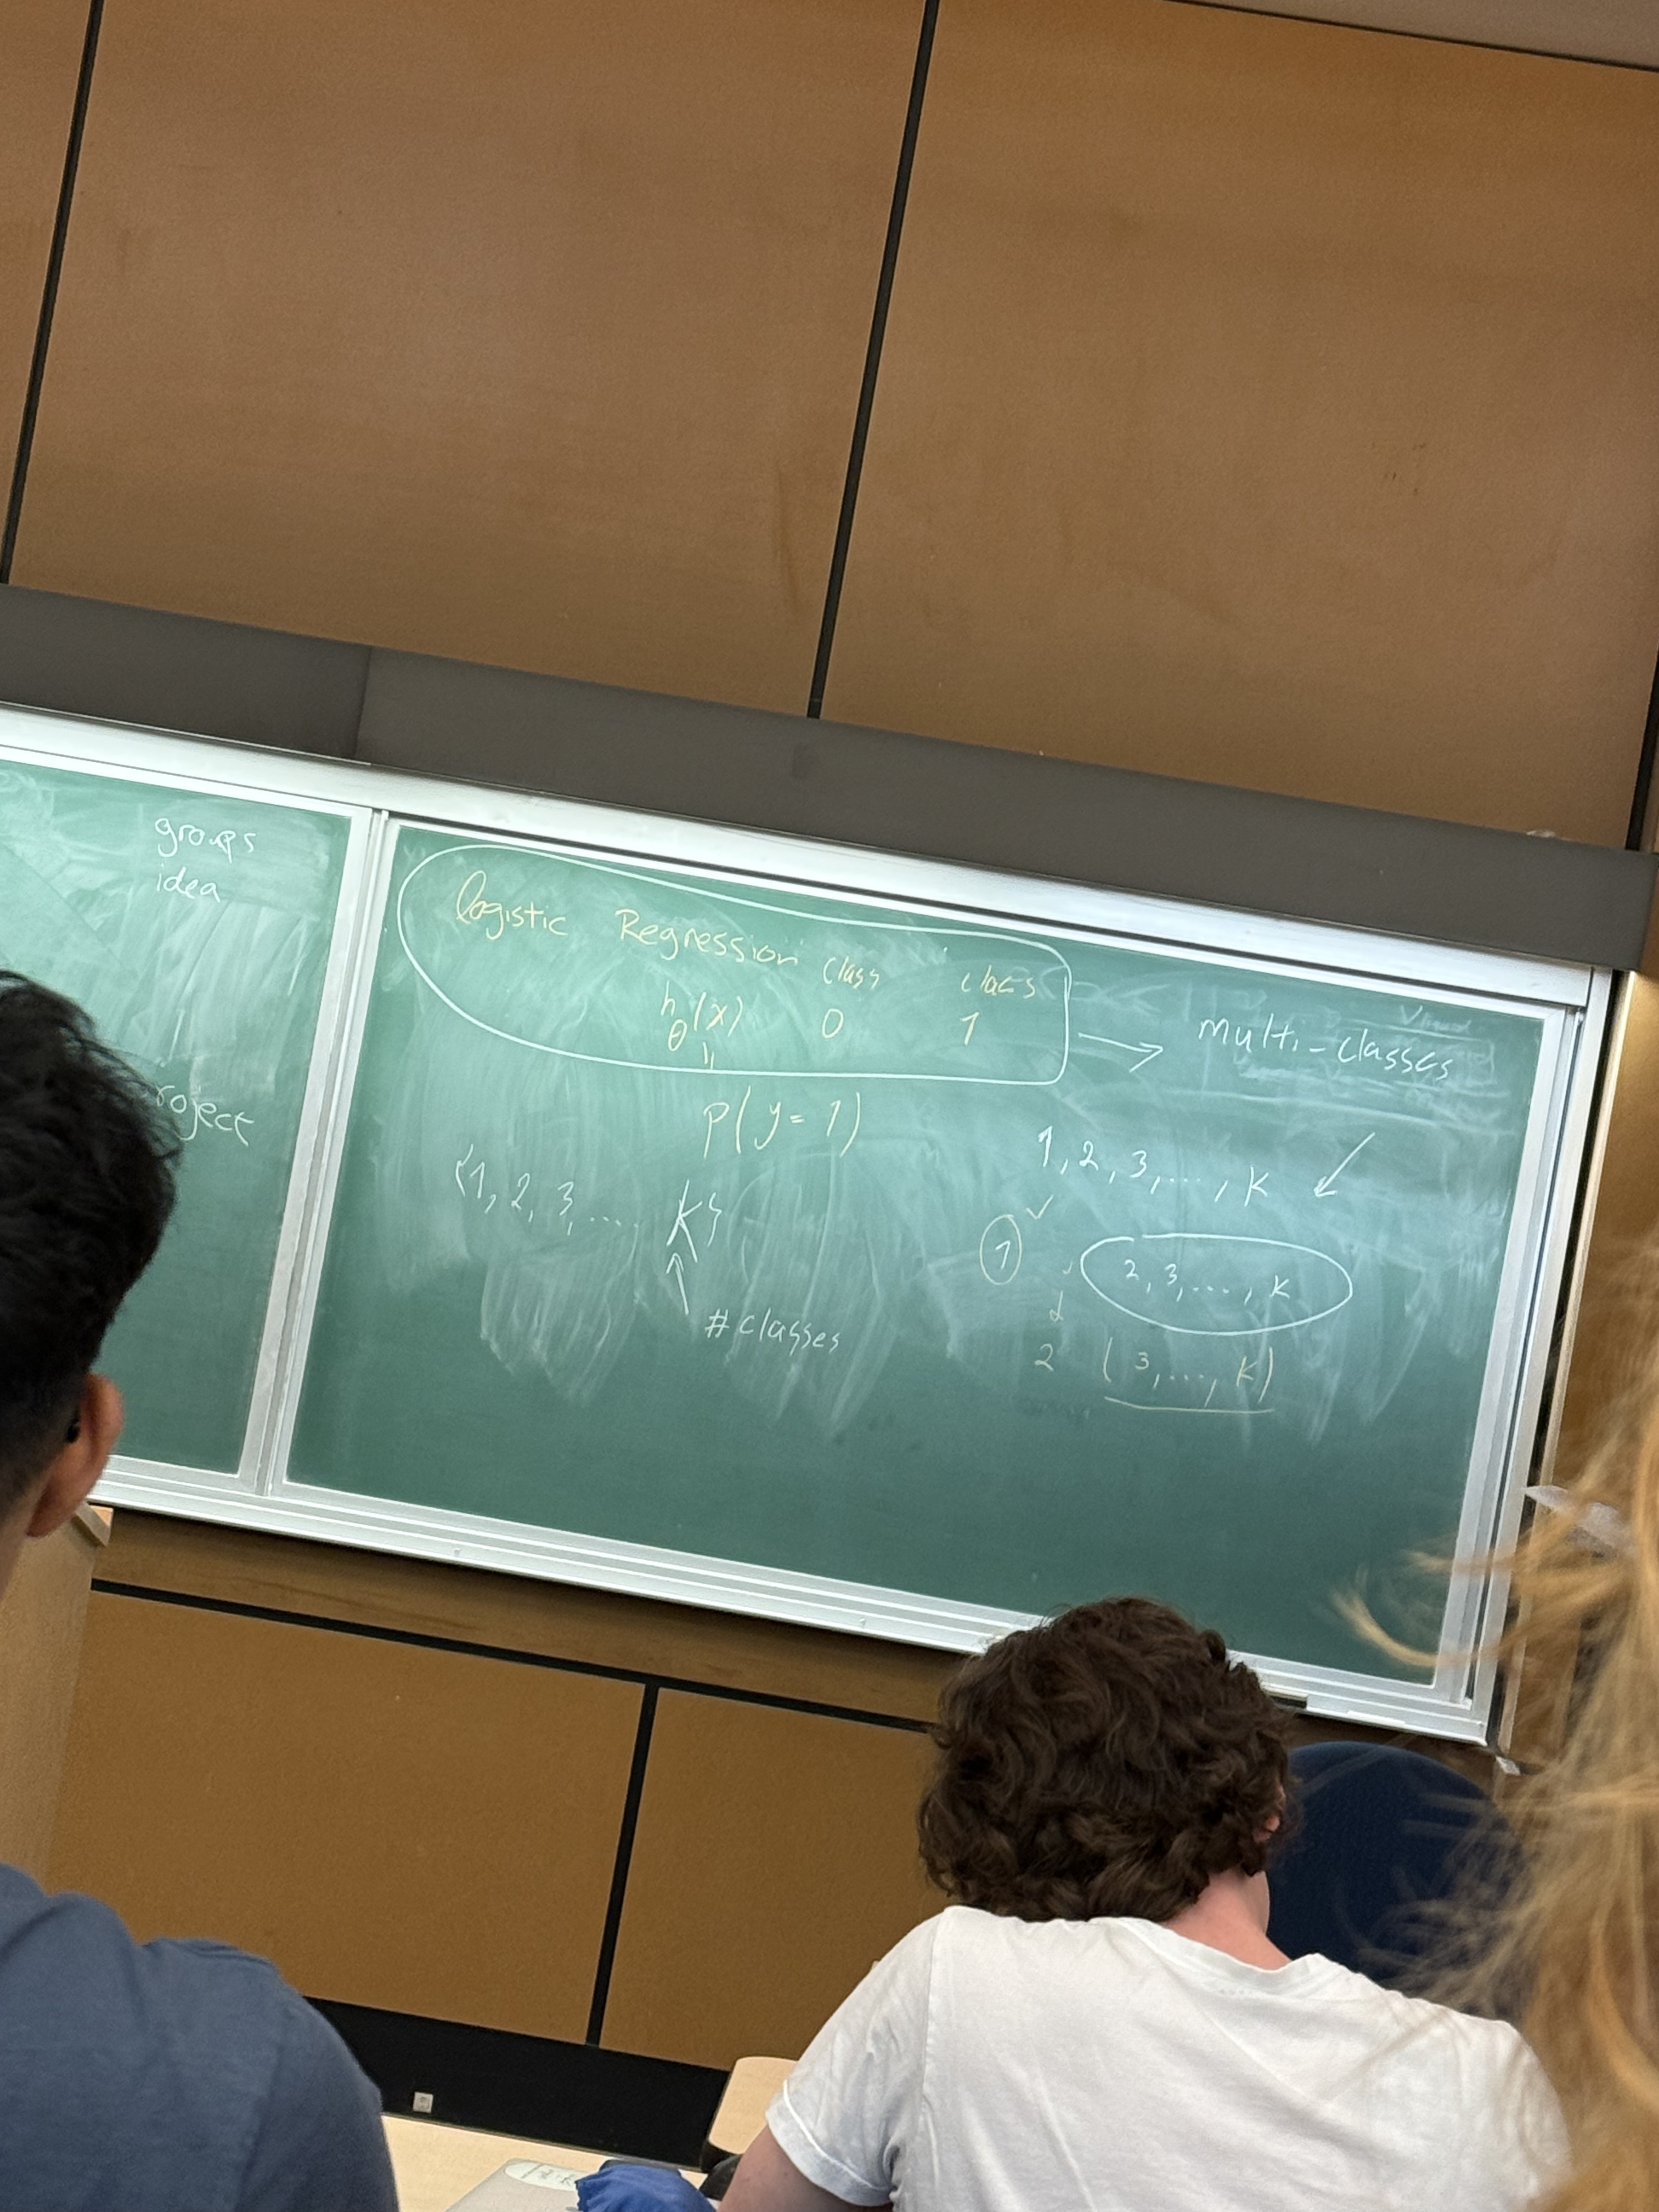 groups
idea
roject
Logistic Regression class class
hθ(x) 0 1
multi-classes
P(y=1)
{1, 2, 3, .... K}
# classes
1, 2, 3, ..., K
1
2, 3, ...., K
2 (3, ..., K)